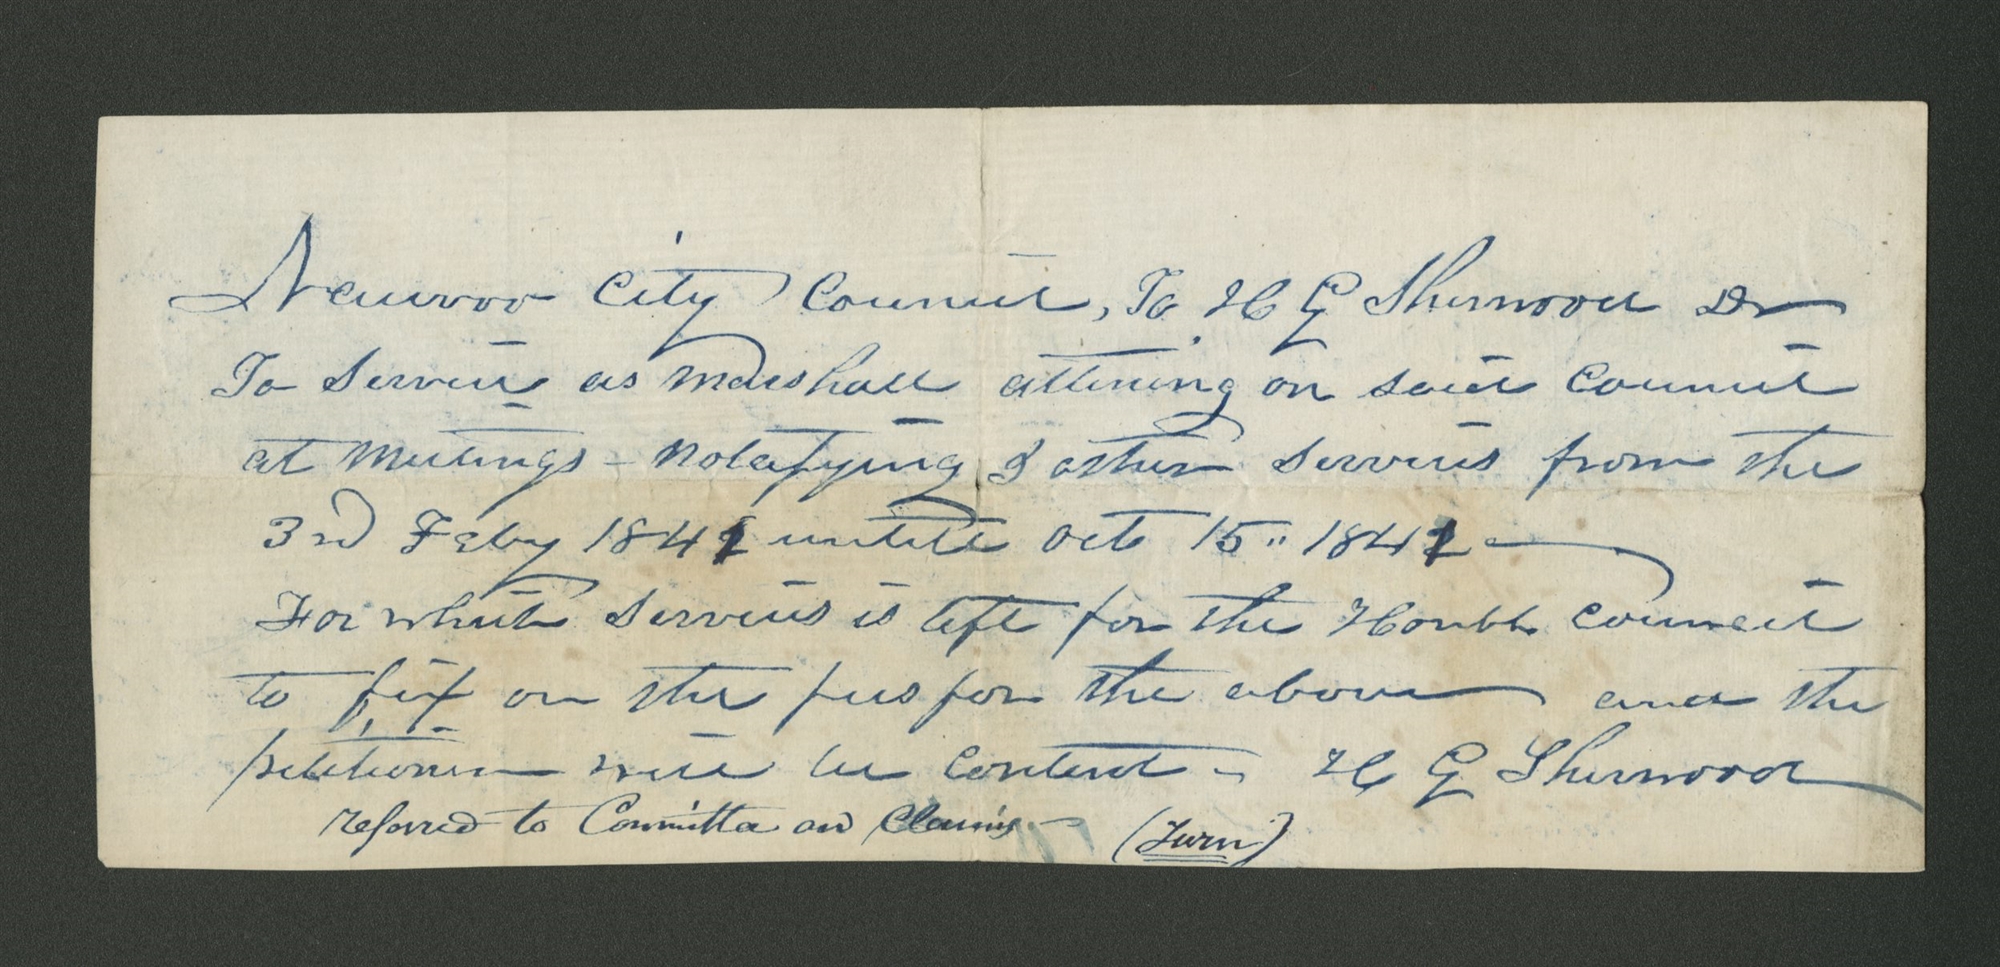 Nauvoo City Council, To H G Sherwood Dr
To Servics as Marshall attening on said Council
at Meetings - Notafying & other Servics from the
3rd Feby 1841 untill Oct 15" 1841
For which Servics is left for the Honbl Council
to fix on the fees for the above and the
petitioner will be content - H G Sherwood
referred to Committee on Claims - (Turn)